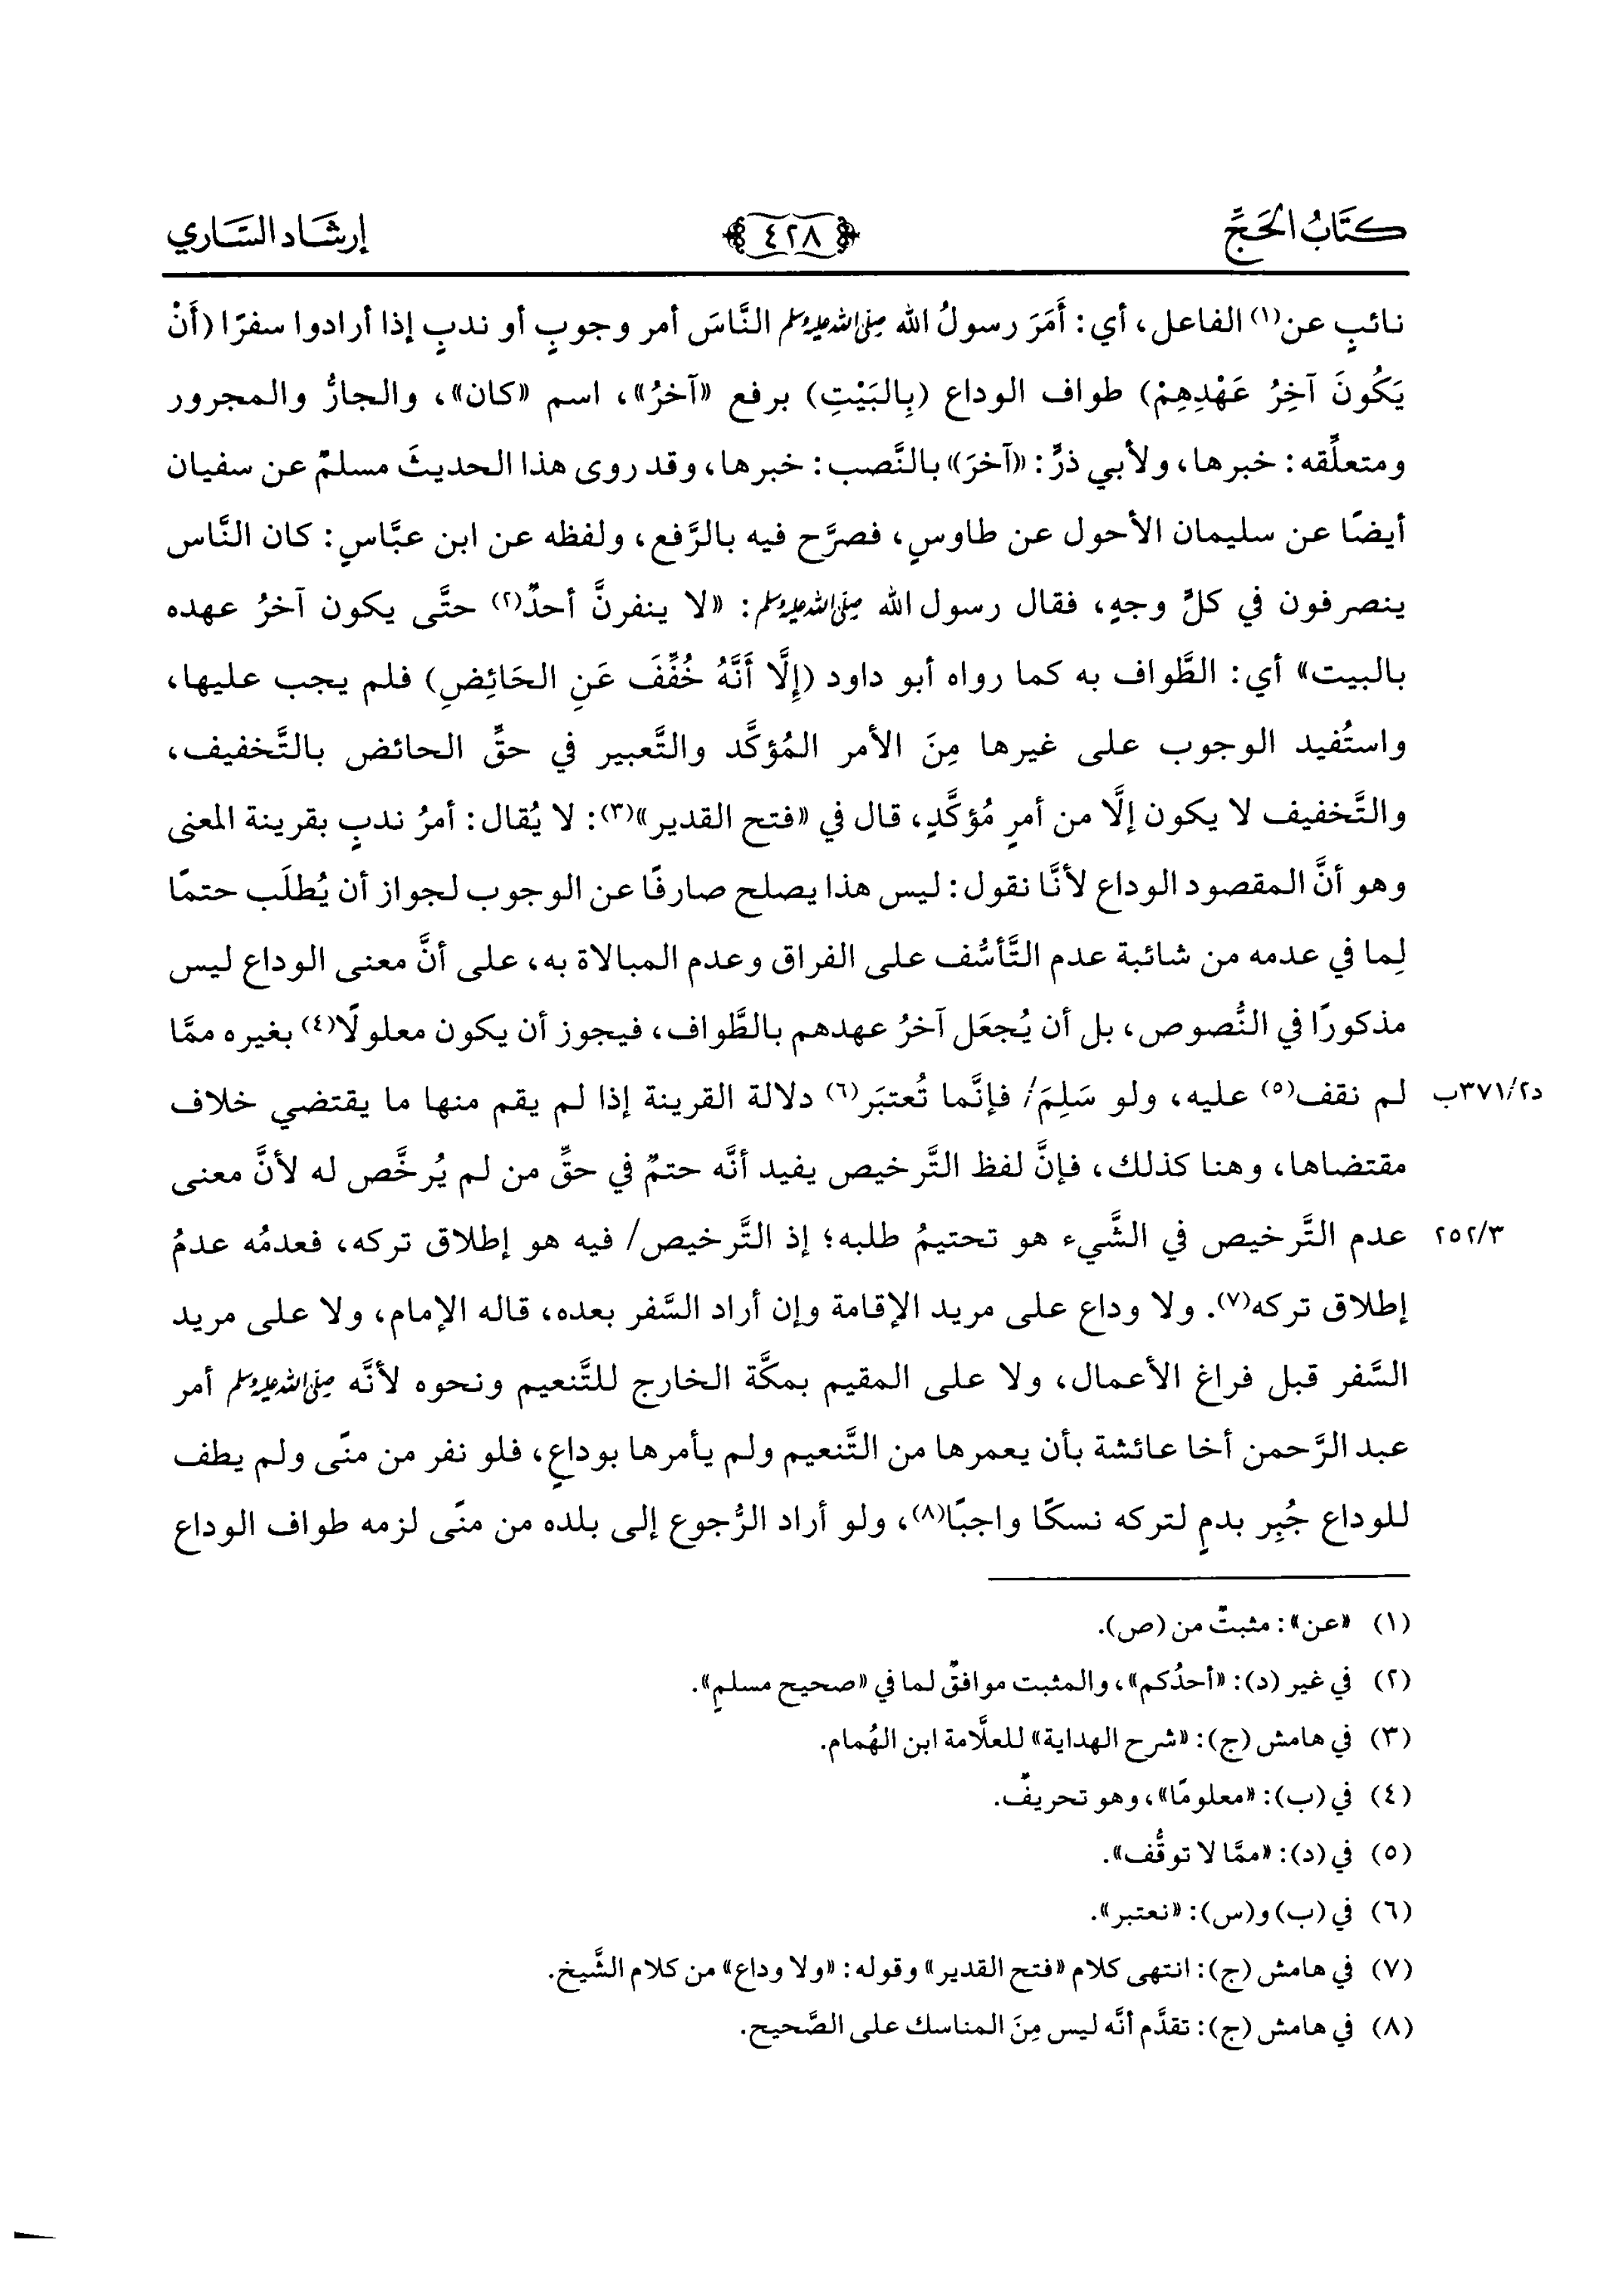 كتَابُ الحَجِّ
٤٢٨
إرشَاد السَّاري
نائبٍ عن(١) الفاعل، أي: أَمَرَ رسولُ الله صلى الله عليه وسلم النَّاسَ أمر وجوبٍ أو ندبٍ إذا أرادوا سفرًا (أَنْ
يَكُونَ آخِرُ عَهْدِهِمْ) طواف الوداع (بِالبَيْتِ) برفع «آخرُ»، اسم «كان»، والجارُّ والمجرور
ومتعلِّقه: خبرها، ولأبي ذرٍّ: «آخرَ» بالنَّصب: خبرها، وقد روى هذا الحديثَ مسلمٌ عن سفيان
أيضًا عن سليمان الأحول عن طاوسٍ، فصرَّح فيه بالرَّفع، ولفظه عن ابن عبَّاسٍ: كان النَّاس
ينصرفون في كلِّ وجهٍ، فقال رسول الله صلى الله عليه وسلم: «لا ينفرنَّ أحدٌ(٢) حتَّى يكون آخرُ عهده
بالبيت» أي: الطَّواف به كما رواه أبو داود (إِلَّا أَنَّهُ خُفِّفَ عَنِ الحَائِضِ) فلم يجب عليها،
واستُفيد الوجوب على غيرها مِنَ الأمر المُؤكَّد والتَّعبير في حقِّ الحائض بالتَّخفيف،
والتَّخفيف لا يكون إلَّا من أمرٍ مُؤكَّدٍ، قال في «فتح القدير»(٣): لا يُقال: أمرُ ندبٍ بقرينة المعنى
وهو أنَّ المقصود الوداع لأنَّا نقول: ليس هذا يصلح صارفًا عن الوجوب لجواز أن يُطلَب حتمًا
لِما في عدمه من شائبة عدم التَّأسُّف على الفراق وعدم المبالاة به، على أنَّ معنى الوداع ليس
مذكورًا في النُّصوص، بل أن يُجعَل آخرُ عهدهم بالطَّواف، فيجوز أن يكون معلولًا(٤) بغيره ممَّا
لم نقف(٥) عليه، ولو سَلِمَ/ فإنَّما تُعتبَر(٦) دلالة القرينة إذا لم يقم منها ما يقتضي خلاف
د٣٧١/٢ب
مقتضاها، وهنا كذلك، فإنَّ لفظ التَّرخيص يفيد أنَّه حتمٌ في حقِّ من لم يُرخَّص له لأنَّ معنى
عدم التَّرخيص في الشَّيء هو تحتيمُ طلبه؛ إذ التَّرخيص/ فيه هو إطلاق تركه، فعدمُه عدمُ
٢٥٢/٣
إطلاق تركه(٧). ولا وداع على مريد الإقامة وإن أراد السَّفر بعده، قاله الإمام، ولا على مريد
السَّفر قبل فراغ الأعمال، ولا على المقيم بمكَّة الخارج للتَّنعيم ونحوه لأنَّه صلى الله عليه وسلم أمر
عبد الرَّحمن أخا عائشة بأن يعمرها من التَّنعيم ولم يأمرها بوداعٍ، فلو نفر من منًى ولم يطف
للوداع جُبِر بدمٍ لتركه نسكًا واجبًا(٨)، ولو أراد الرُّجوع إلى بلده من منًى لزمه طواف الوداع
(١) «عن»: مثبتٌ من (ص).
(٢) في غير (د): «أحدُكم»، والمثبت موافقٌ لما في «صحيح مسلمٍ».
(٣) في هامش (ج): «شرح الهداية» للعلَّامة ابن الهُمام.
(٤) في (ب): «معلومًا»، وهو تحريفٌ.
(٥) في (د): «ممَّا لا توقُّف».
(٦) في (ب) و(س): «نعتبر».
(٧) في هامش (ج): انتهى كلام «فتح القدير» وقوله: «ولا وداع» من كلام الشَّيخ.
(٨) في هامش (ج): تقدَّم أنَّه ليس مِنَ المناسك على الصَّحيح.